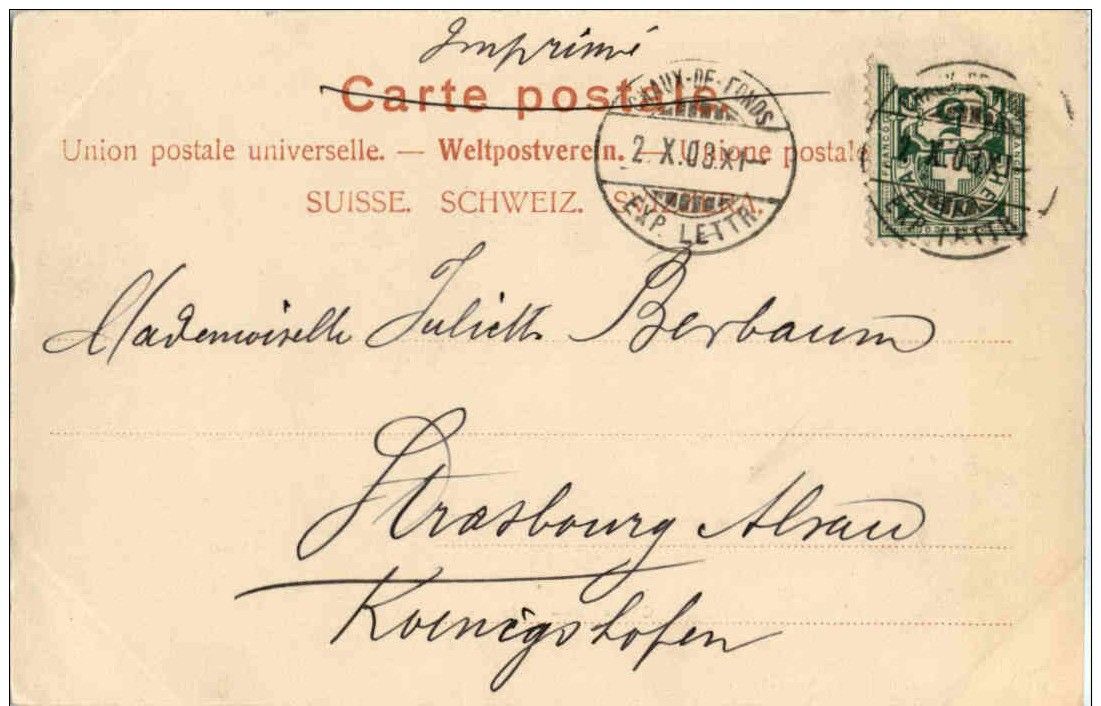 Imprimé
Carte postale.
Union postale universelle. — Weltpostverein. — Unione postale
SUISSE. SCHWEIZ. SVIZZERA.
CHAUX-DE-FONDS
2. X. 03. XI—
EXP. LETTR.
FRANCO
X. 03. XI
EXP. LETTR.
Mademoiselle Juliette Berbaum
Strasbourg Alsace
Koenigshofen